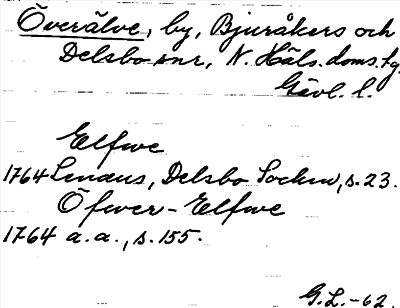 Överälve, by, Bjuråkers och
Delsbo snr, N. Häls. doms. tg.
Gävl. l.
Elfwe
1764 Lenæus, Delsbo Socken, s. 23.
Öfwer-Elfwe
1764 a. a., s. 155.
G. L. -62.